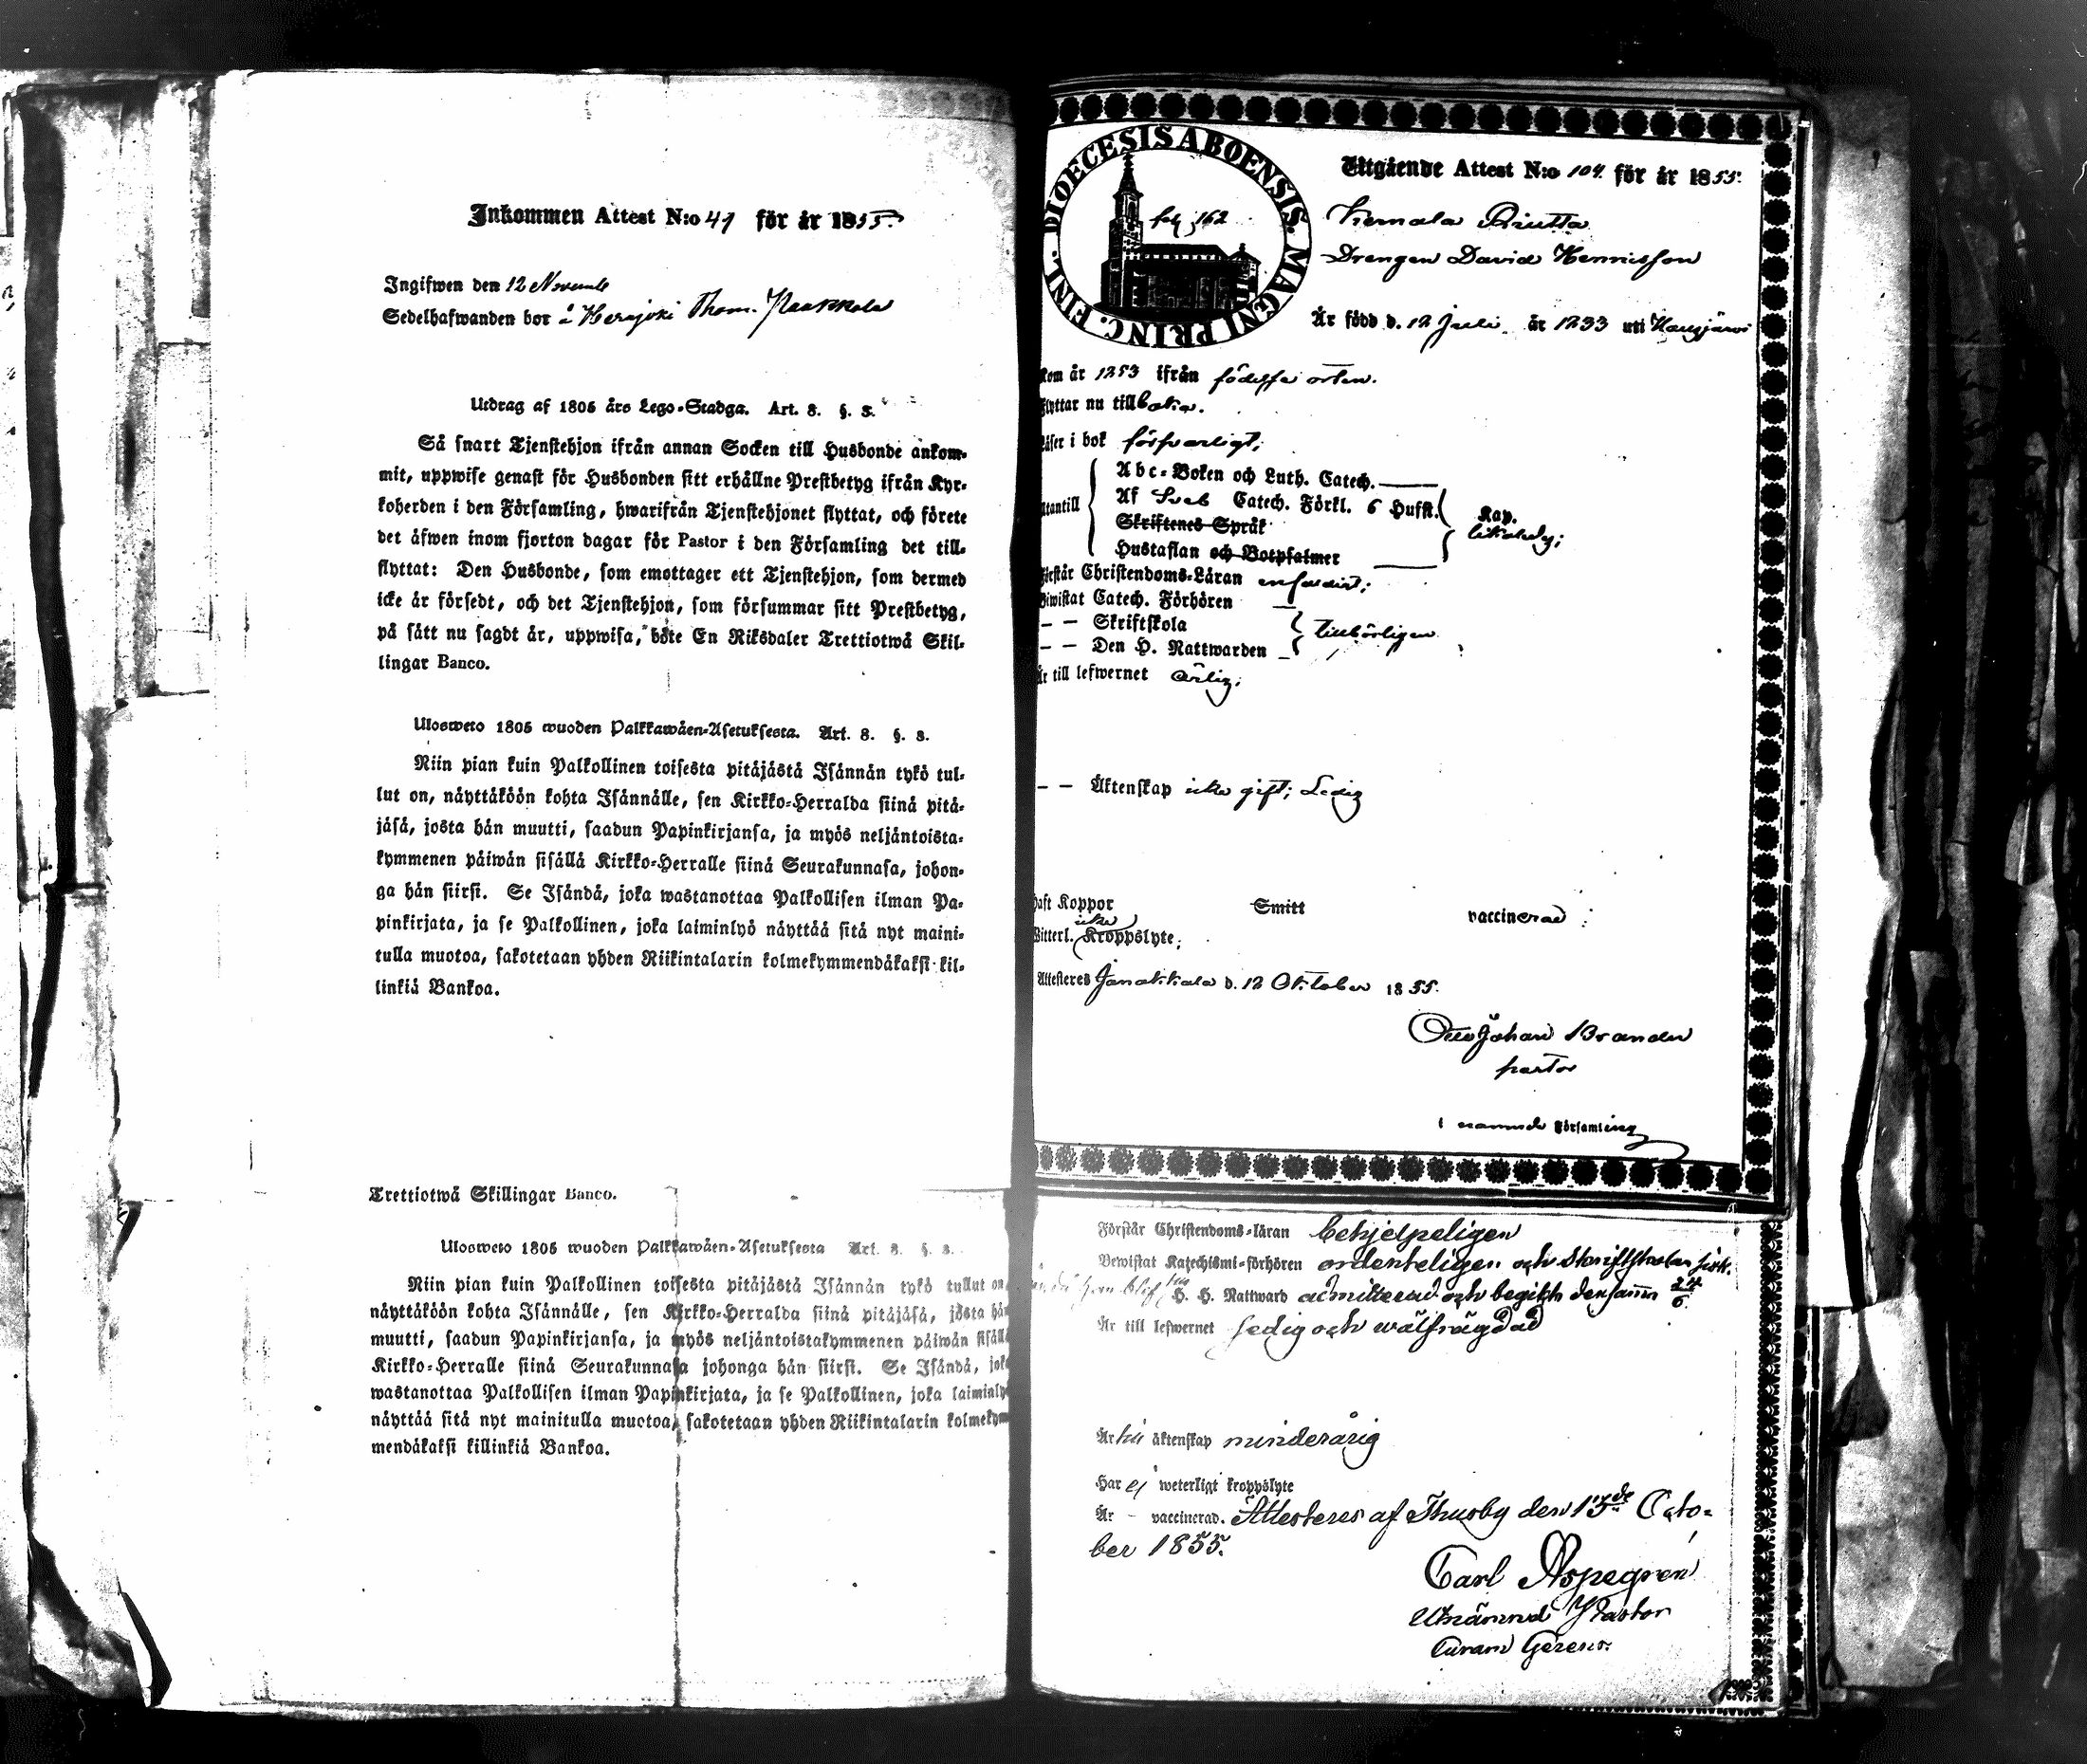 Inkommen Attest N:o 41 för år 1855.
Ingifwen den 12 Novemb
Sedelhafwanden bor å Herajoki Thom.
Utdrag af 1805 års Lego-Stadga. Art. 8. §. 3.
Så snart Tjenstehjon ifrån annan Socken till Husbonde ankom-
mit, uppwise genast för Husbonden sitt erhållne Prestbetyg ifrån Kyr-
koherden i den Församling, hwarifrån Tjenstehjonet flyttat, och förete
det äfwen inom fjorton dagar för Pastor i den Församling det till-
flyttat: Den Husbonde, som emottager ett Tjenstehjon, som dermed
icke är försedt, och det Tjenstehjon, som försummar sitt Prestbetyg,
på sätt nu sagdt är, uppwisa, böte En Riksdaler Trettiotwå Skil-
lingar Banco.
Ulosweto 1805 wuoden Palkkawäen-Asetuksesta. Art. 8. §. 3.
Niin pian kuin Palkollinen toisesta pitäjästä Isännän tykö tul-
lut on, näyttäköön kohta Isännälle, sen Kirkko-Herralda siinä pitä-
jäsä, josta hän muutti, saadun Papinkirjansa, ja myös neljäntoista-
kymmenen päiwän sisällä Kirkko-Herralle siinä Seurakunnasa, johon-
ga hän siirsi. Se Isändä, joka wastanottaa Palkollisen ilman Pa-
pinkirjata, ja se Palkollinen, joka laiminlyö näyttää sitä nyt maini-
tulla muotoa, sakotetaan yhden Riikintalarin kolmekymmendäkaksi kil-
linkiä Bankoa.
Trettiotwå Skillingar Banco.
Ulosweto 1805 wuoden Palkkawäen-Asetuksesta Art. 8. §. 3.
Niin pian kuin Palkollinen toisesta pitäjästä Isännän tykö tullut on
näyttäköön kohta Isännälle, sen Kirkko-Herralda siinä pitäjäsä, josta hän
muutti, saadun Papinkirjansa, ja myös neljäntoistakymmenen päiwän sisällä
Kirkko-Herralle siinä Seurakunnasa johonga hän siirsi. Se Isändä, joka
wastanottaa Palkollisen ilman Papinkirjata, ja se Palkollinen, joka laiminly
näyttää sitä nyt mainitulla muotoa, sakotetaan yhden Riikintalarin kolmekym
mendäkaksi killinkiä Bankoa.
DIOECESIS ABOENSIS. MAGNI PRINC. FINL.
fol. 162
Utgående Attest N:o 104. för år 1855.
Hemala
Drengen David Henricsson
Är född d. 12 Juli år 1833 uti Hausjärvi
kom år 1853 ifrån födelse orten.
Flyttar nu tillbaka.
Läser i bok försvarligt;
Utantill
Abc-Boken och Luth. Catech.
Af Sveb Catech. Förkl. 6 Hufst.
Skriftenes Språk
Hustaflan och Botpsalmer
Kap.
likaledes;
Förstår Christendoms-Läran enfaldigt;
Biwistat Catech. Förhören
— — Skriftskola
— — Den H. Nattwarden
tillbörligen
Är till lefwernet ärlig;
— — Äktenskap icke gift; Ledig
Haft Koppor Smitt vaccinerad
icke
Witterl. Kroppslyte;
Attesteres Janakkala d. 12 Oktober 1855.
Otto Johan Brander
pastor
i nämnde Församling
Förstår Christendoms-läran behjelpeligen
Bewistat Katechismi-förhören ordenteligen och Skriftskolan
H. H. Nattward admitterad och begikk densamm 24/6
Är till lefwernet fedig och wälfrägdad
Är till äktenskap minderårig
Har ej weterligt kroppslyte
Är – vaccinerad. Attesteres af Thusby den 13de Octo-
ber 1855.
Carl Aspegrén
Utnämnd Pastor
Curam Gerens.